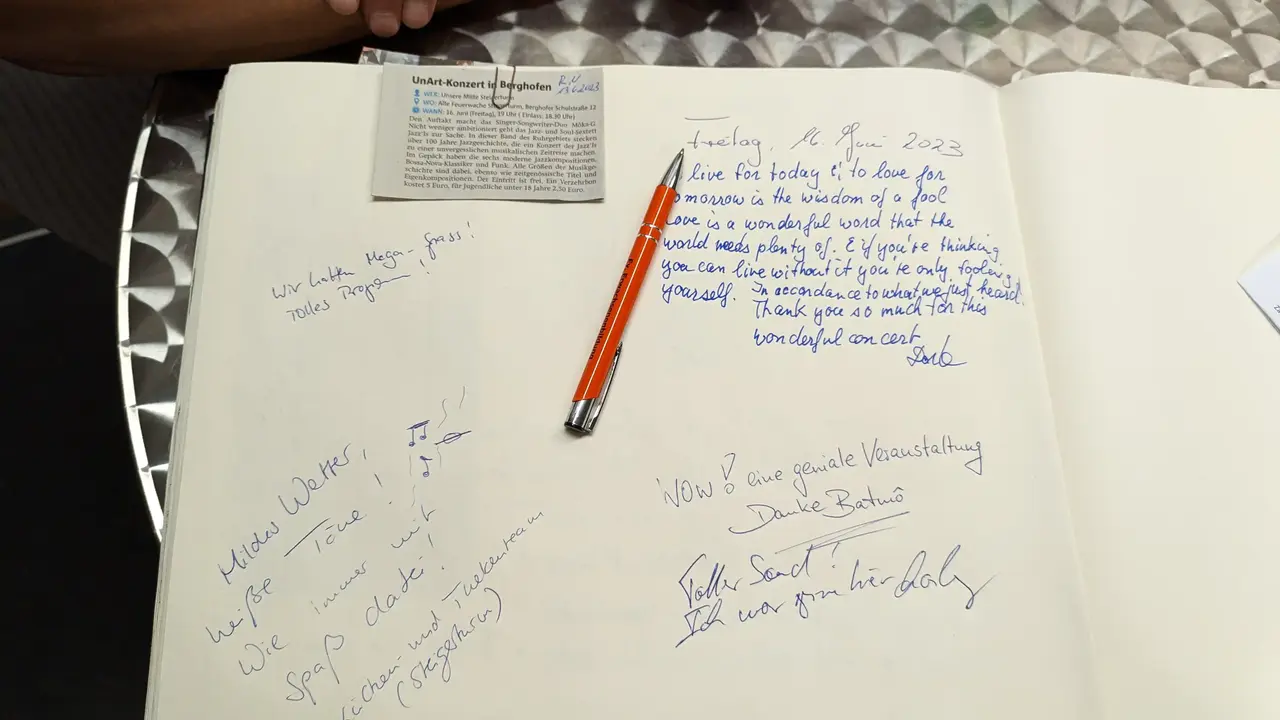 UnArt-Konzert in Berghofen
R.N
13.6.2023
WER: Unsere Mitte Steigerturm
WO: Alte Feuerwache Steigerturm, Berghofer Schulstraße 12
WANN: 16. Juni (Freitag), 19 Uhr ( Einlass: 18.30 Uhr)
Den Auftakt macht das Singer-Songwriter-Duo Möka-G.
Nicht weniger ambitioniert geht das Jazz- und Soul-Sextett
Jazz'Is zur Sache. In dieser Band des Ruhrgebiets stecken
über 100 Jahre Jazzgeschichte, die ein Konzert der Jazz'Is
zu einer unvergesslichen musikalischen Zeitreise machen.
Im Gepäck haben die sechs moderne Jazzkompositionen,
Bossa-Nova-Klassiker und Funk. Alle Größen der Musikge-
schichte sind dabei, ebenso wie zeitgenössische Titel und
Eigenkompositionen. Der Eintritt ist frei. Ein Verzehrbon
kostet 5 Euro, für Jugendliche unter 18 Jahre 2,50 Euro.
Wir hatten Mega-Spass!
Tolles Program!
Mildes Wetter,
heiße Töne!
Wie immer mit
Spaß dabei!
Küchen- und Thekenteam
(Steigerturm)
Freitag, 16. Juni 2023
live for today & to love for
omorrow is the wisdom of a fool
Love is a wonderful word that the
world needs plenty of. & if you're thinking
you can live without it you're only fooling
yourself. In accordance to what we just heard.
Thank you so much for this
wonderful concert
WOW! eine geniale Veranstaltung
Danke Batmô
Toller Sound!
Ich war gern hier